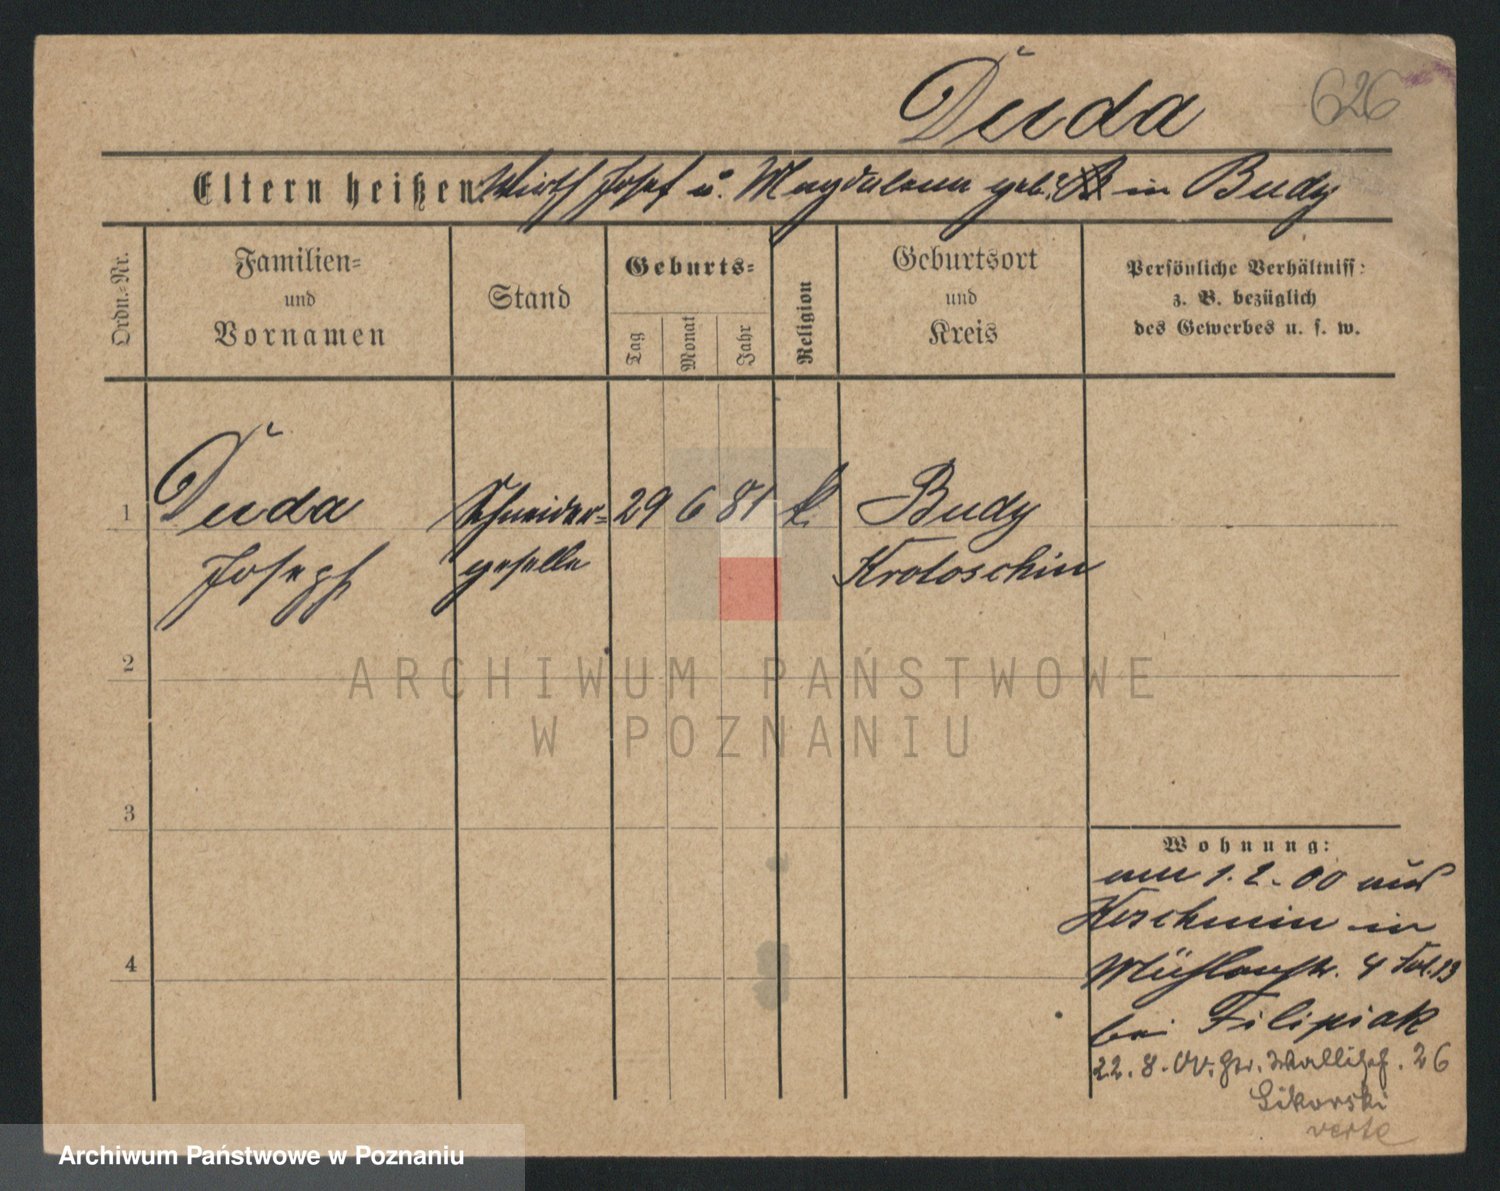 Duda 626
Eltern heißen Wirth Josef u. Magdalena geb. in Budy
Ordn.-Nr.
Familien-
und
Vornamen
Stand
Geburts-
Tag
Monat
Jahr
Religion
Geburtsort
und
Kreis
Persönliche Verhältniss:
z. B. bezüglich
des Gewerbes u. s. w.
1 Duda Schneider- 29 6 81 k. Budy
Joseph geselle Krotoschin
2
ARCHIWUM PAŃSTWOWE
W POZNANIU
3
Wohnung:
am 1.2.00 aus
Koschmin in
4
Mühlenstr. 4 13
bei Filipiak
22.8.00. Gr. 26
Sikorski
verte
Archiwum Państwowe w Poznaniu